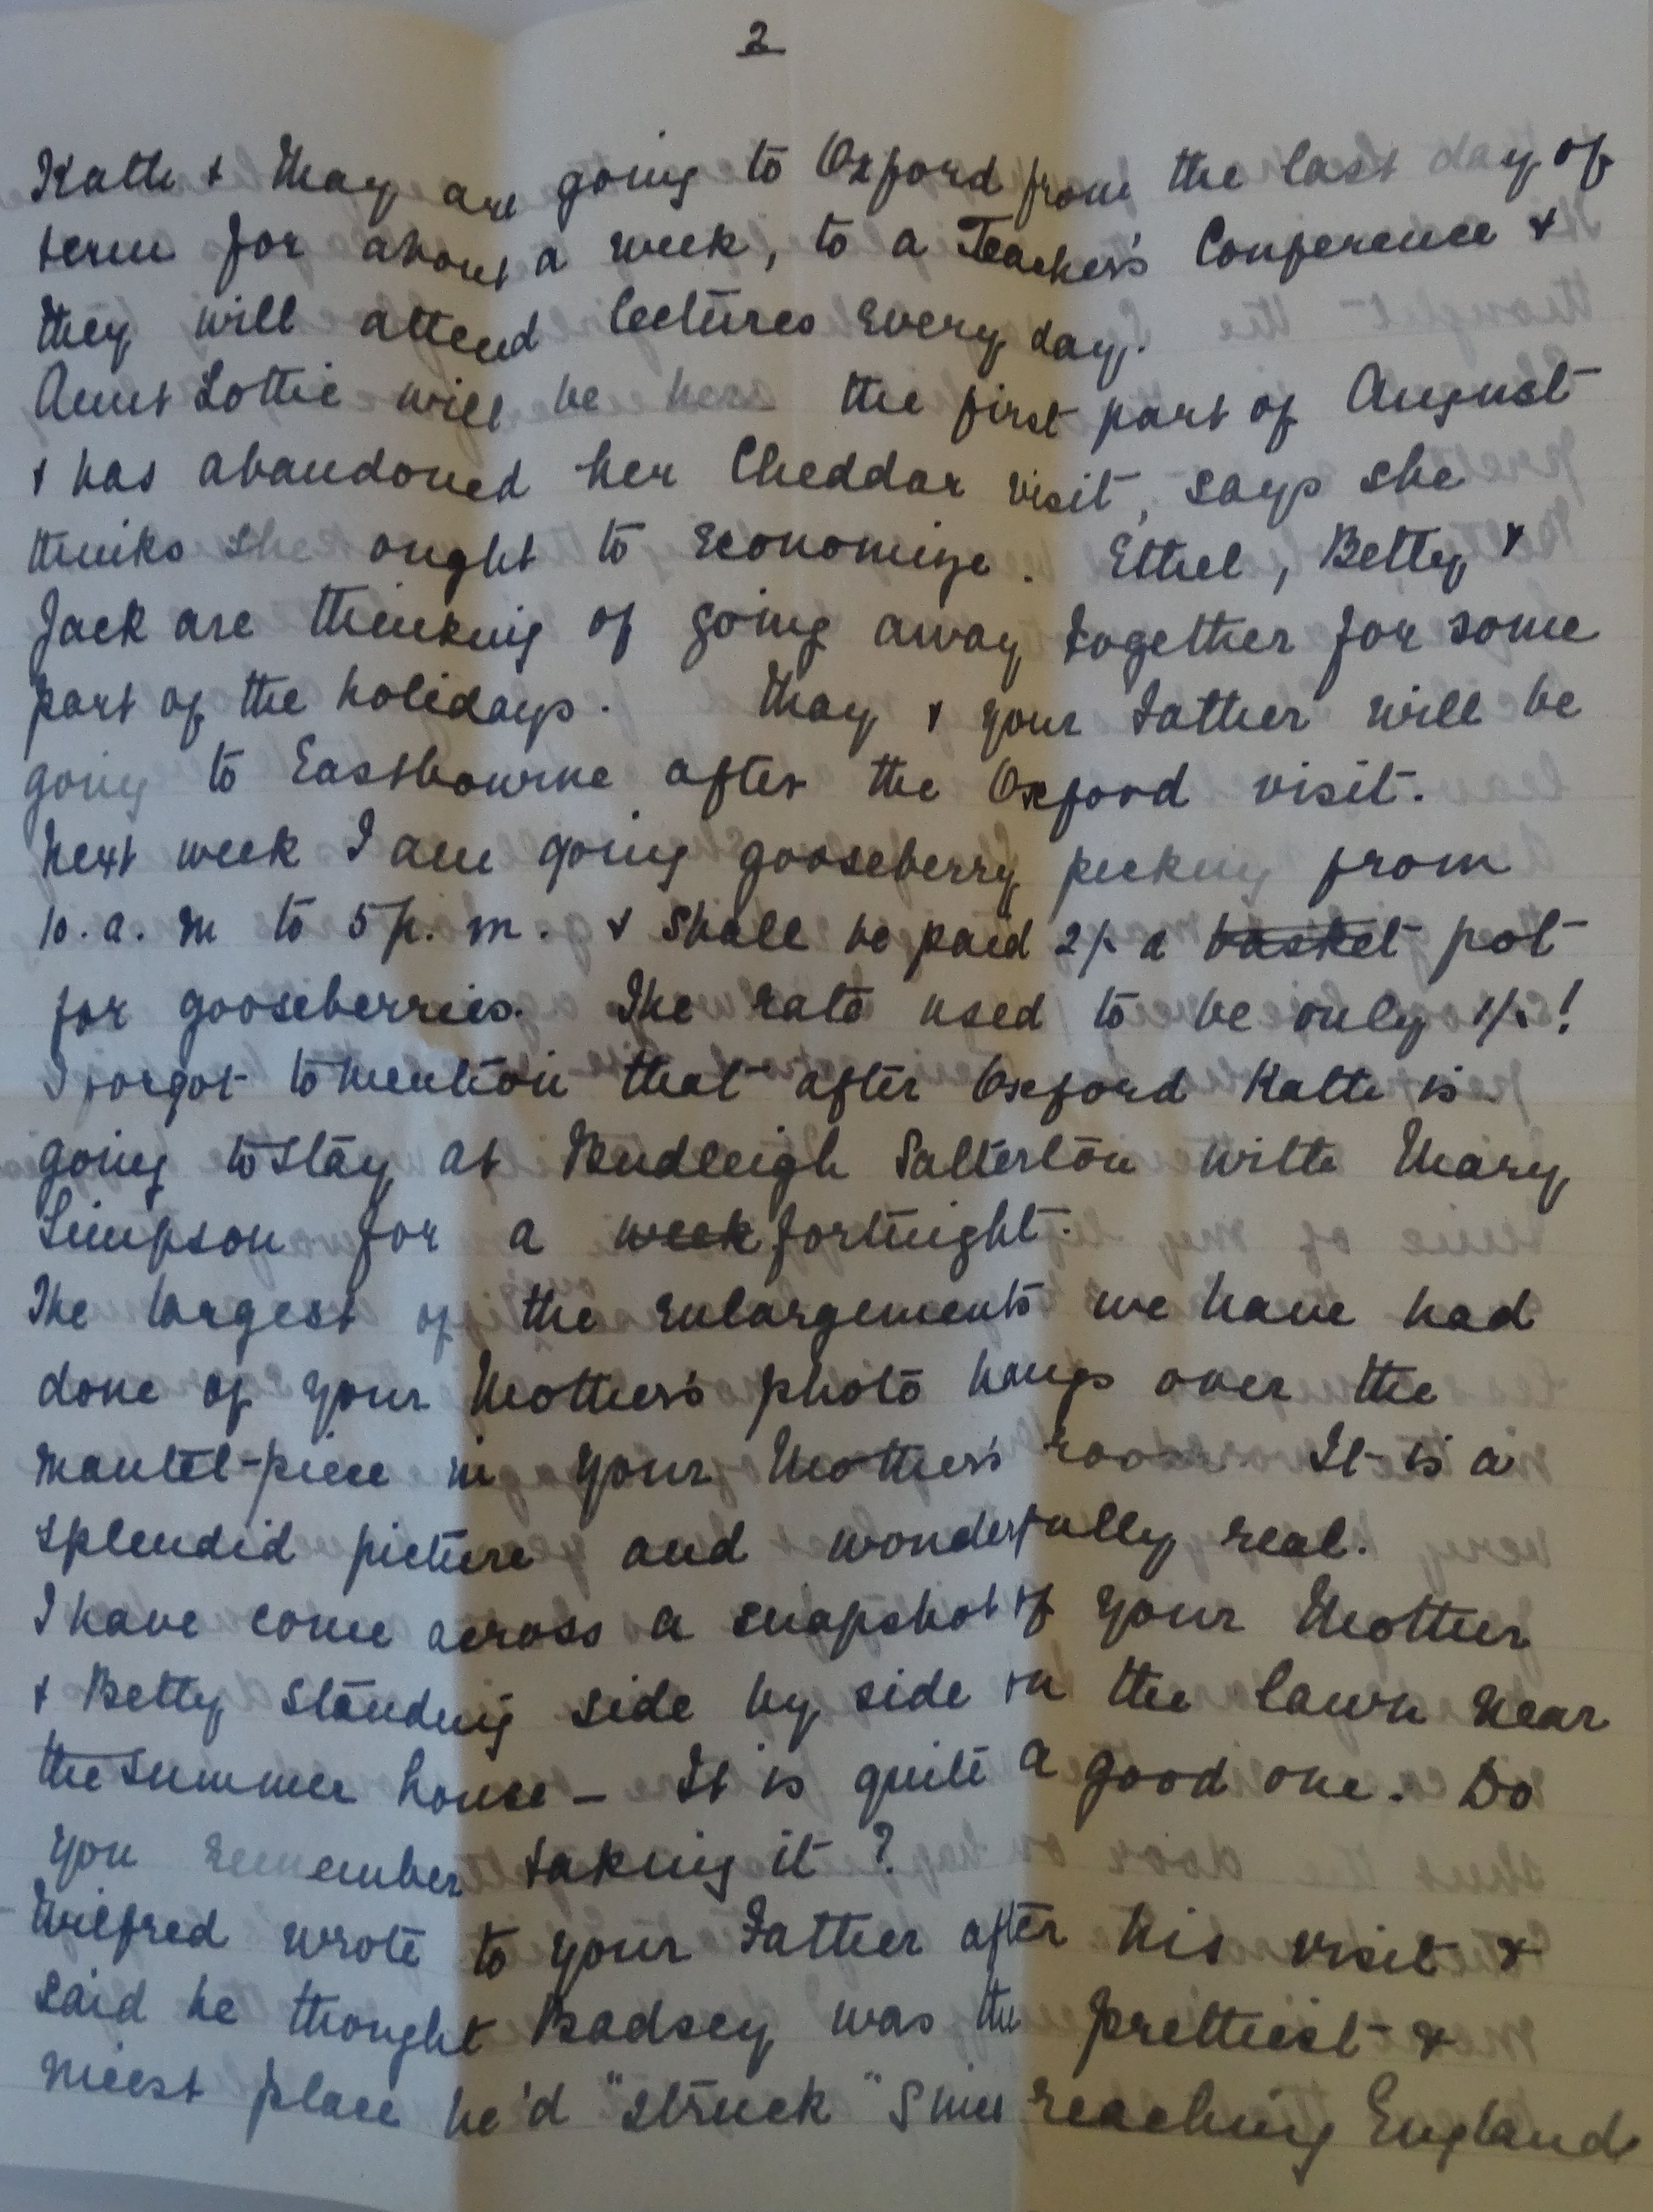 2
Kath & May are going to Oxford from the last day of
term for about a week, to a Teacher's Conference &
they will attend lectures every day.
Aunt Lottie will be here the first part of August
& has abandoned her Cheddar visit, says she
thinks she ought to economize. Ethel, Betty &
Jack are thinking of going away together for some
part of the holidays. May & your Father will be
going to Eastbourne after the Oxford visit.
Next week I am going gooseberry picking from
10. a. m to 5 p. m. & shall be paid 2/- a basket pot
for gooseberries. The rate used to be only 1/-!
I forgot to mention that after Oxford Kath is
going to stay at Budleigh Salterton with Mary
Simpson for a week fortnight.
The largest of the enlargements we have had
done of your Mother's photo hangs over the
mantel-piece in your Mother's room. It is a
splendid picture and wonderfully real.
I have come across a snapshot of your Mother
& Betty standing side by side on the lawn near
the summer house - It is quite a good one. Do
you remember taking it?
Wilfred wrote to your Father after his visit &
said he thought Badsey was the prettiest &
nicest place he'd "struck" since reaching England